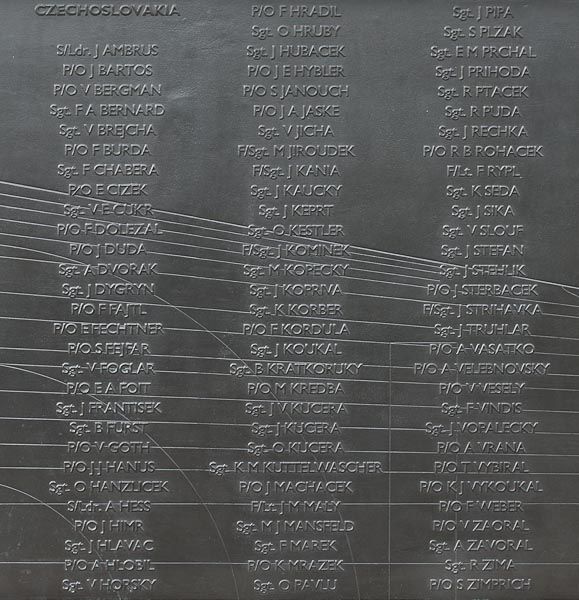 CZECHOSLOVAKIA
S/Ldr. J AMBRUS
P/O J BARTOS
P/O V BERGMAN
Sgt. F A BERNARD
Sgt. V BREJCHA
P/O F BURDA
Sgt. F CHABERA
P/O F CIZEK
Sgt. V E CUKR
P/O F DOLEZAL
P/O J DUDA
Sgt. A DVORAK
Sgt. J DYGRYN
P/O F FAJTL
P/O E FECHTNER
P/O S FEJFAR
Sgt. V FOGLAR
P/O E A FOIT
Sgt. J FRANTISEK
Sgt. B FURST
P/O V GOTH
P/O J J HANUS
Sgt. O HANZLICEK
S/Ldr. A HESS
P/O J HIMR
Sgt. J HLAVAC
P/O A HLOBIL
Sgt. V HORSKY
P/O F HRADIL
Sgt. O HRUBY
Sgt. J HUBACEK
P/O J E HYBLER
P/O S JANOUCH
P/O J A JASKE
Sgt. V JICHA
F/Sgt. M JIROUDEK
F/Sgt. J KANIA
Sgt. J KAUCKY
Sgt. J KEPRT
Sgt. O KESTLER
F/Sgt. J KOMINEK
Sgt. M KOPECKY
Sgt. J KOPRIVA
Sgt. K KORBER
P/O F KORDULA
Sgt. J KOUKAL
Sgt. B KRATKORUKY
P/O M KREDBA
Sgt. J V KUCERA
Sgt. J KUCERA
Sgt. O KUCERA
Sgt. K M KUTTELWASCHER
P/O J MACHACEK
F/Lt. J M MALY
Sgt. M J MANSFELD
Sgt. F MAREK
P/O K MRAZEK
Sgt. O PAVLU
Sgt. J PIPA
Sgt. S PLZAK
Sgt. E M PRCHAL
Sgt. J PRIHODA
Sgt. R PTACEK
Sgt. R PUDA
Sgt. J RECHKA
P/O R B ROHACEK
F/Lt. F RYPL
Sgt. K SEDA
Sgt. J SIKA
Sgt. V SLOUF
Sgt. J STEFAN
Sgt. J STEHLIK
P/O J STERBACEK
F/Sgt. J STRIHAVKA
Sgt. J TRUHLAR
P/O A VASATKO
P/O A VELEBNOVSKY
P/O V VESELY
Sgt. F VINDIS
Sgt. J VOPALECKY
P/O A VRANA
P/O T VYBIRAL
P/O K J VYKOUKAL
P/O F WEBER
P/O V ZAORAL
Sgt. A ZAVORAL
Sgt. R ZIMA
P/O S ZIMPRICH